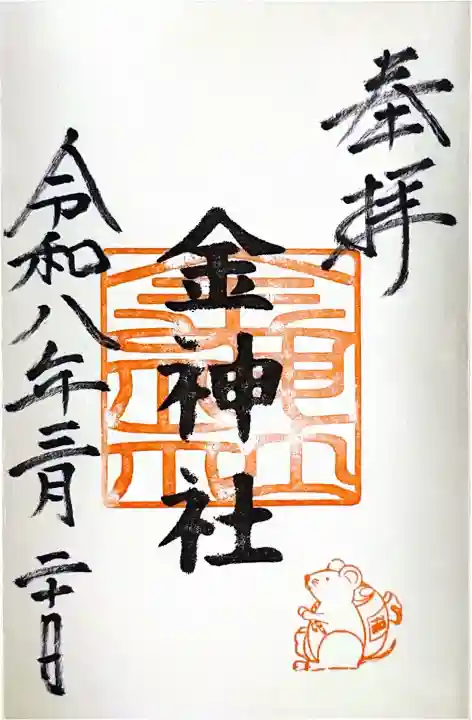 奉拝
金神社
令和八年三月二十日